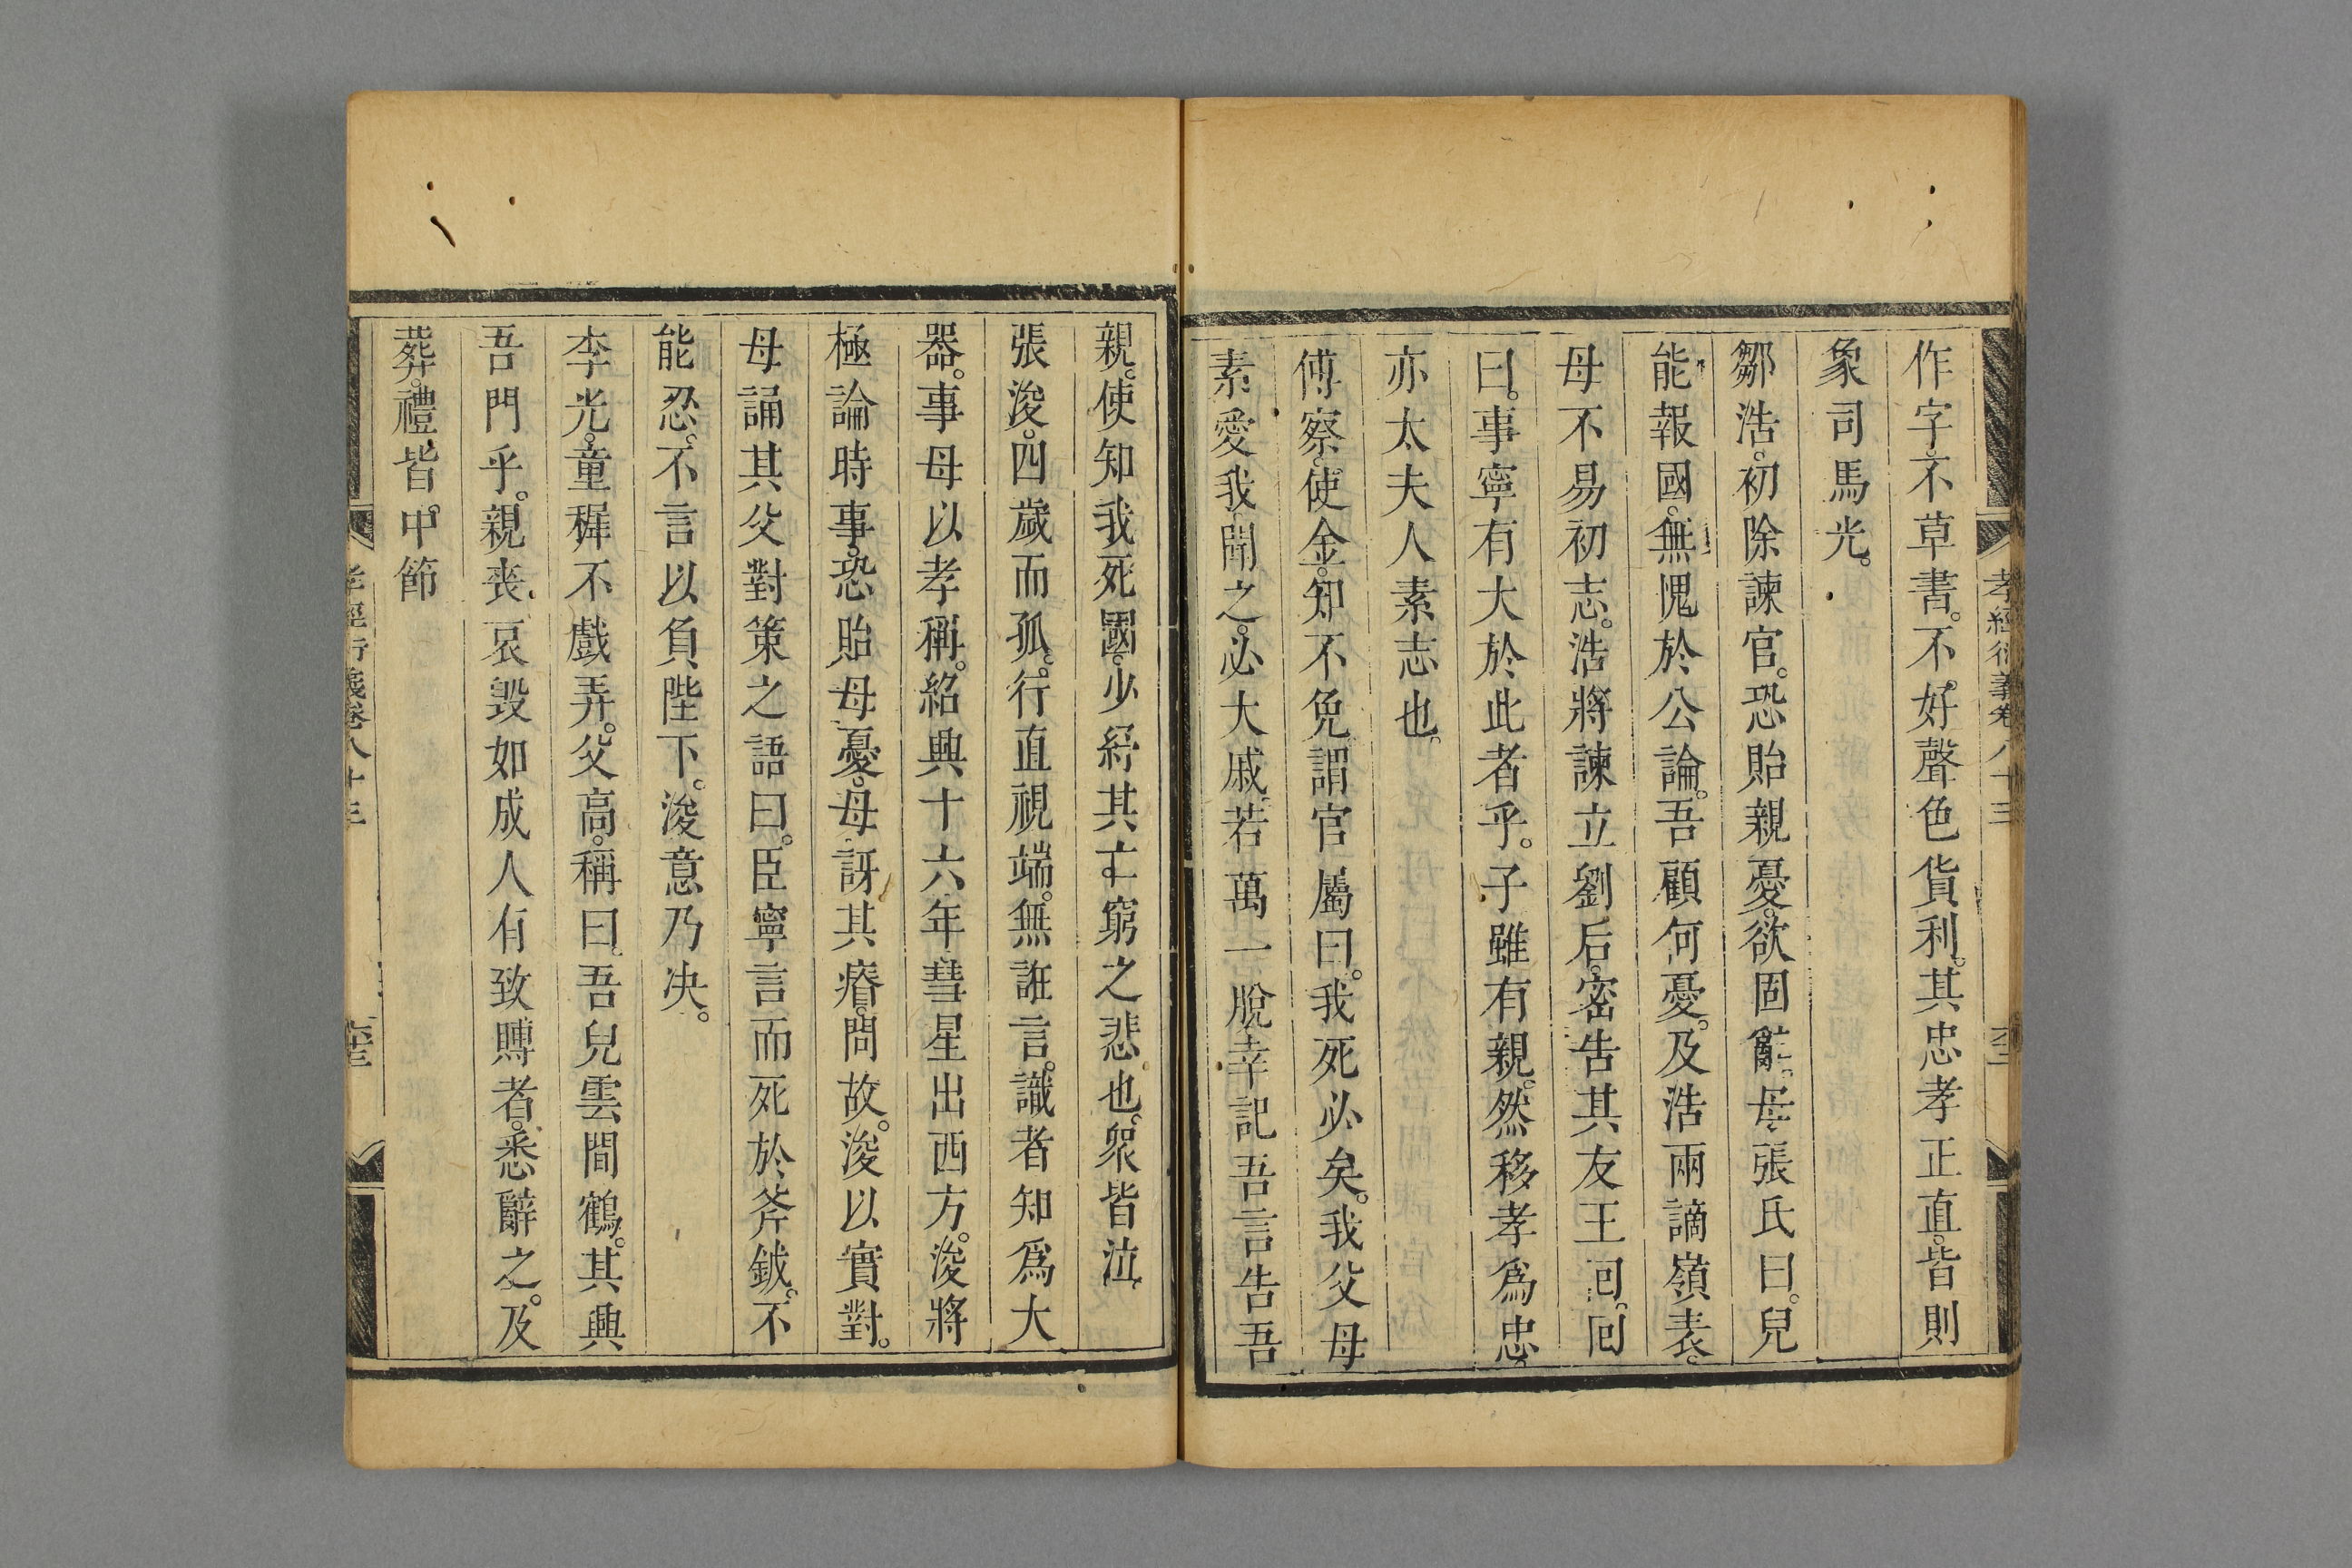 孝經衍義卷八十三
作字。不草書。不好聲色貨利。其忠孝正直。皆則
象司馬光。
鄒浩。初除諫官。恐貽親憂。欲固辭。母張氏曰。兒
能報國。無愧於公論。吾顧何憂。及浩兩謫嶺表。
母不易初志。浩將諫立劉后。密告其友王囘。囘
曰。事寧有大於此者乎。子雖有親。然移孝爲忠。
亦太夫人素志也。
傅察。使金。知不免。謂官屬曰。我死必矣。我父母
素愛我。聞之。必大戚。若萬一脫。幸記吾言。告吾
親。使知我死國。少紓其亡窮之悲也。衆皆泣。
張浚。四歲而孤。行直視端。無誑言。識者知爲大
器。事母以孝稱。紹興十六年。彗星出西方。浚將
極論時事。恐貽母憂。母訝其瘠。問故。浚以實對。
母誦其父對策之語曰。臣寧言而死於斧鉞。不
能忍不言以負陛下。浚意乃决。
李光。童穉不戲弄。父高。稱曰。吾兒雲間鶴。其興
吾門乎。親喪。哀毀如成人。有致賻者。悉辭之。及
葬。禮皆中節
孝經衍義卷八十三